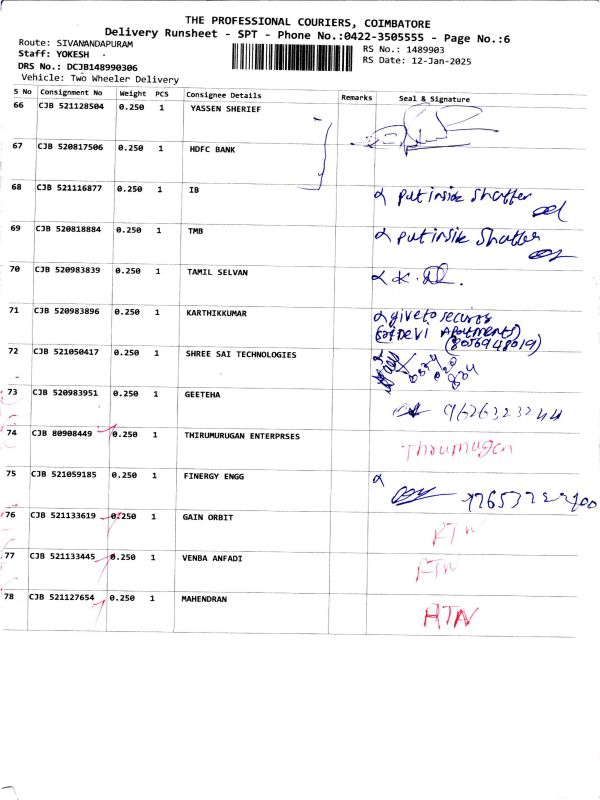 THE PROFESSIONAL COURIERS, COIMBATORE
Delivery Runsheet - SPT - Phone No.:0422-3505555 - Page No.:6
Route: SIVANANDAPURAM
Staff: YOKESH
DRS No.: DCJB148990306
Vehicle: Two Wheeler Delivery
RS No.: 1489903
RS Date: 12-Jan-2025
S No Consignment No Weight PCS Consignee Details Remarks Seal & Signature
66 CJB 521128504 0.250 1 YASSEN SHERIEF
67 CJB 520817506 0.250 1 HDFC BANK
68 CJB 521116877 0.250 1 IB put inside Shatter
69 CJB 520818884 0.250 1 TMB put insie Shatter
70 CJB 520983839 0.250 1 TAMIL SELVAN
71 CJB 520983896 0.250 1 KARTHIKKUMAR give to
Devi Apartments)
(8056948019)
72 CJB 521050417 0.250 1 SHREE SAI TECHNOLOGIES
73 CJB 520983951 0.250 1 GEETEHA 9626323244
74 CJB 80908449 0.250 1 THIRUMURUGAN ENTERPRSES Thirumugan
75 CJB 521059185 0.250 1 FINERGY ENGG
76 CJB 521133619 0.250 1 GAIN ORBIT RTN
77 CJB 521133445 0.250 1 VENBA ANFADI RTN
78 CJB 521127654 0.250 1 MAHENDRAN RTN